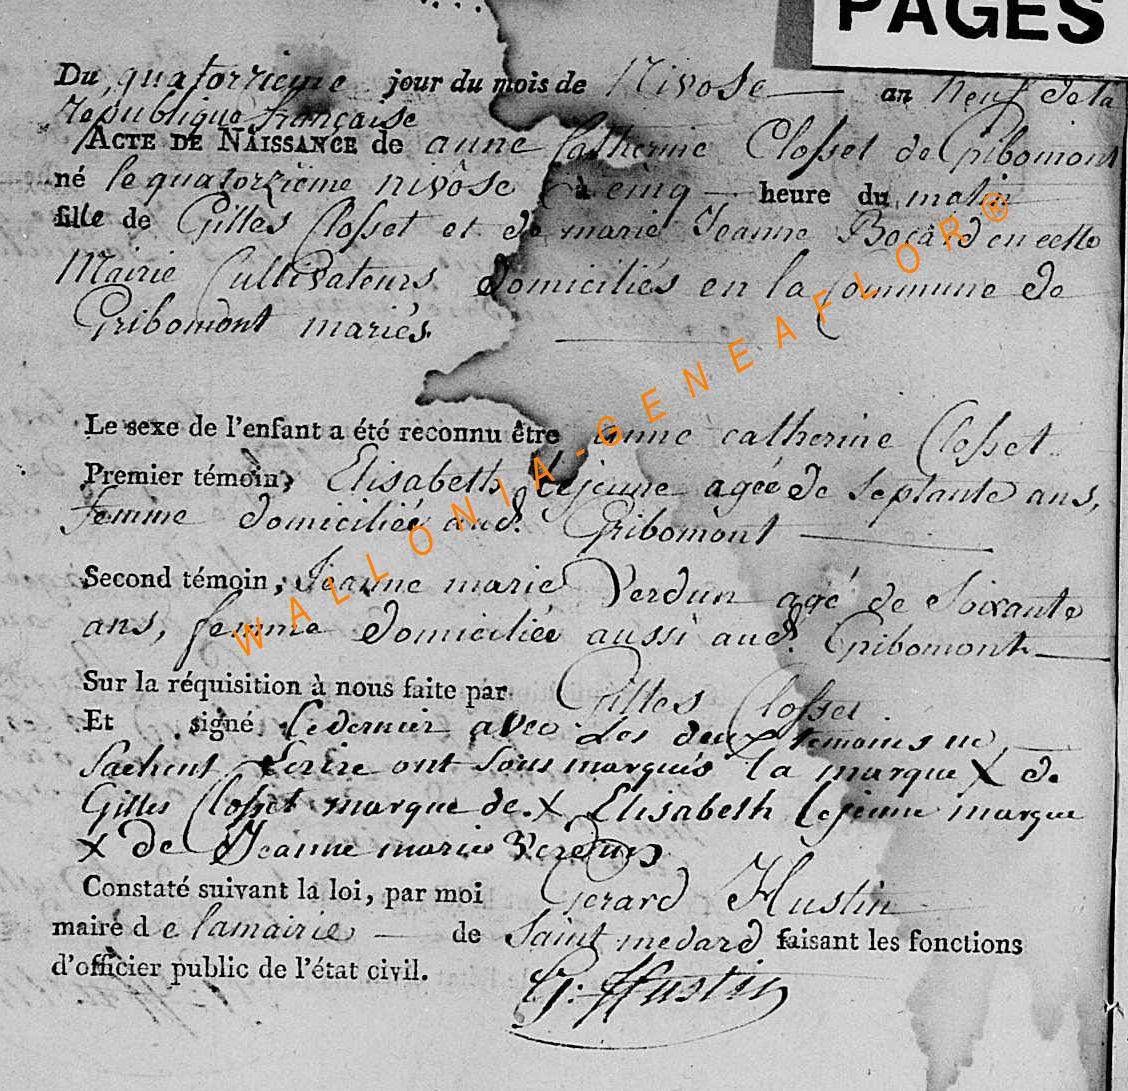 PAGES
Du quatorzieme jour du mois de Nivose an neuf de la
Republique française
ACTE DE NAISSANCE de anne Catherine Closset de Gribomont
né le quatorzieme nivôse à cinq heure du matin
fille de Gilles Closset et de marie Jeanne en cette
Mairie Cultivateurs domiciliés en la Commune de
Gribomont mariés
Le sexe de l'enfant a été reconnu être anne catherine Closset
Premier témoin, Elisabeth Lejeune agée de septante ans,
femme domiciliée aud. Gribomont
Second témoin, Jeanne marie Verdun agé de Soixante
ans, femme domiciliée aussi aud. Gribomont
Sur la réquisition à nous faite par Gilles Closset
Et signé Le dernier avec Les deux temoins ne
Sachant Ecrire ont sous marqués la marque X de
Gilles Closset marque de X Elisabeth Lejeune marque
X de Jeanne marie Verdun
Constaté suivant la loi, par moi Gerard Hustin
maire de lamairie de Saint medard faisant les fonctions
d'officier public de l'état civil.
G. Hustin
WALLONIA-GENEAFLOR®